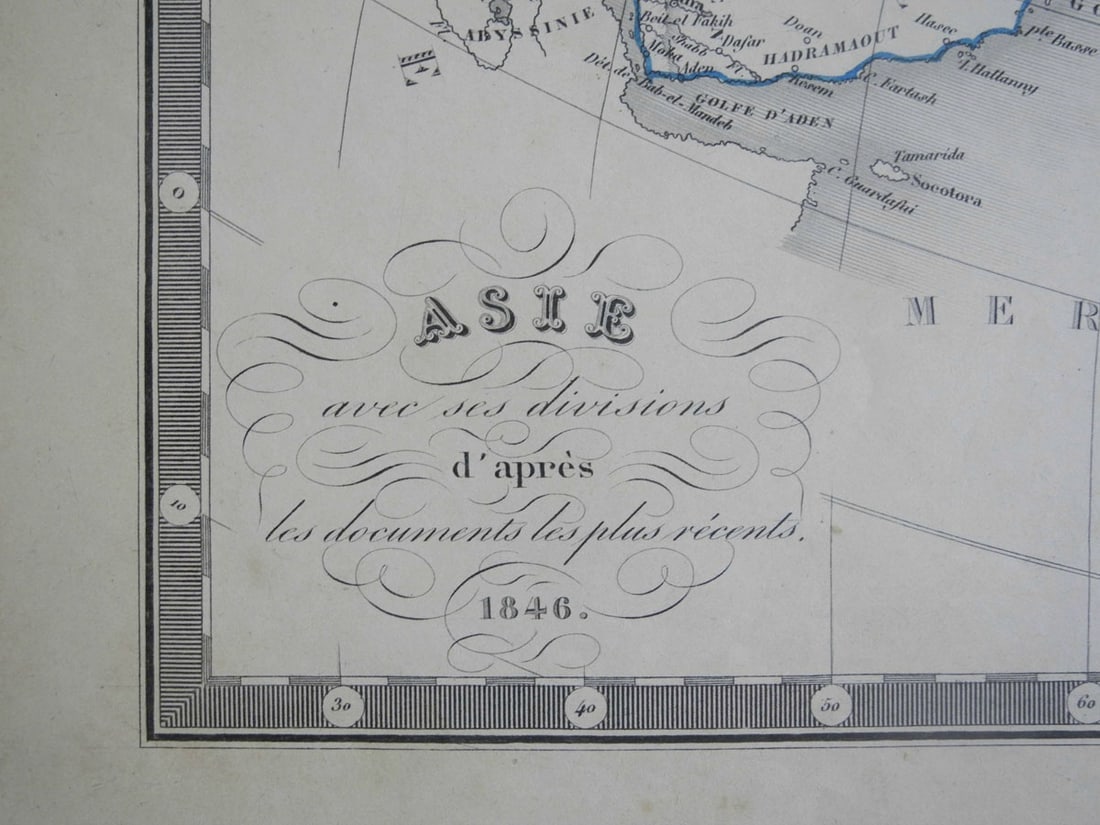 ABYSSINIE
Beit-el Fakih
Doan
Hasec
Dafar
HADRAMAOUT
pte Basse
Moka
Aden
I. Hallanny
Dét. de
Bab-el-Mandeb
Kesem
C. Fartash
GOLFE D'ADEN
Tamarida
Socotora
C. Guardafui
0
MER
ASIE
avec ses divisions
d'après
10
les documents les plus récents.
1846.
30
40
50
60